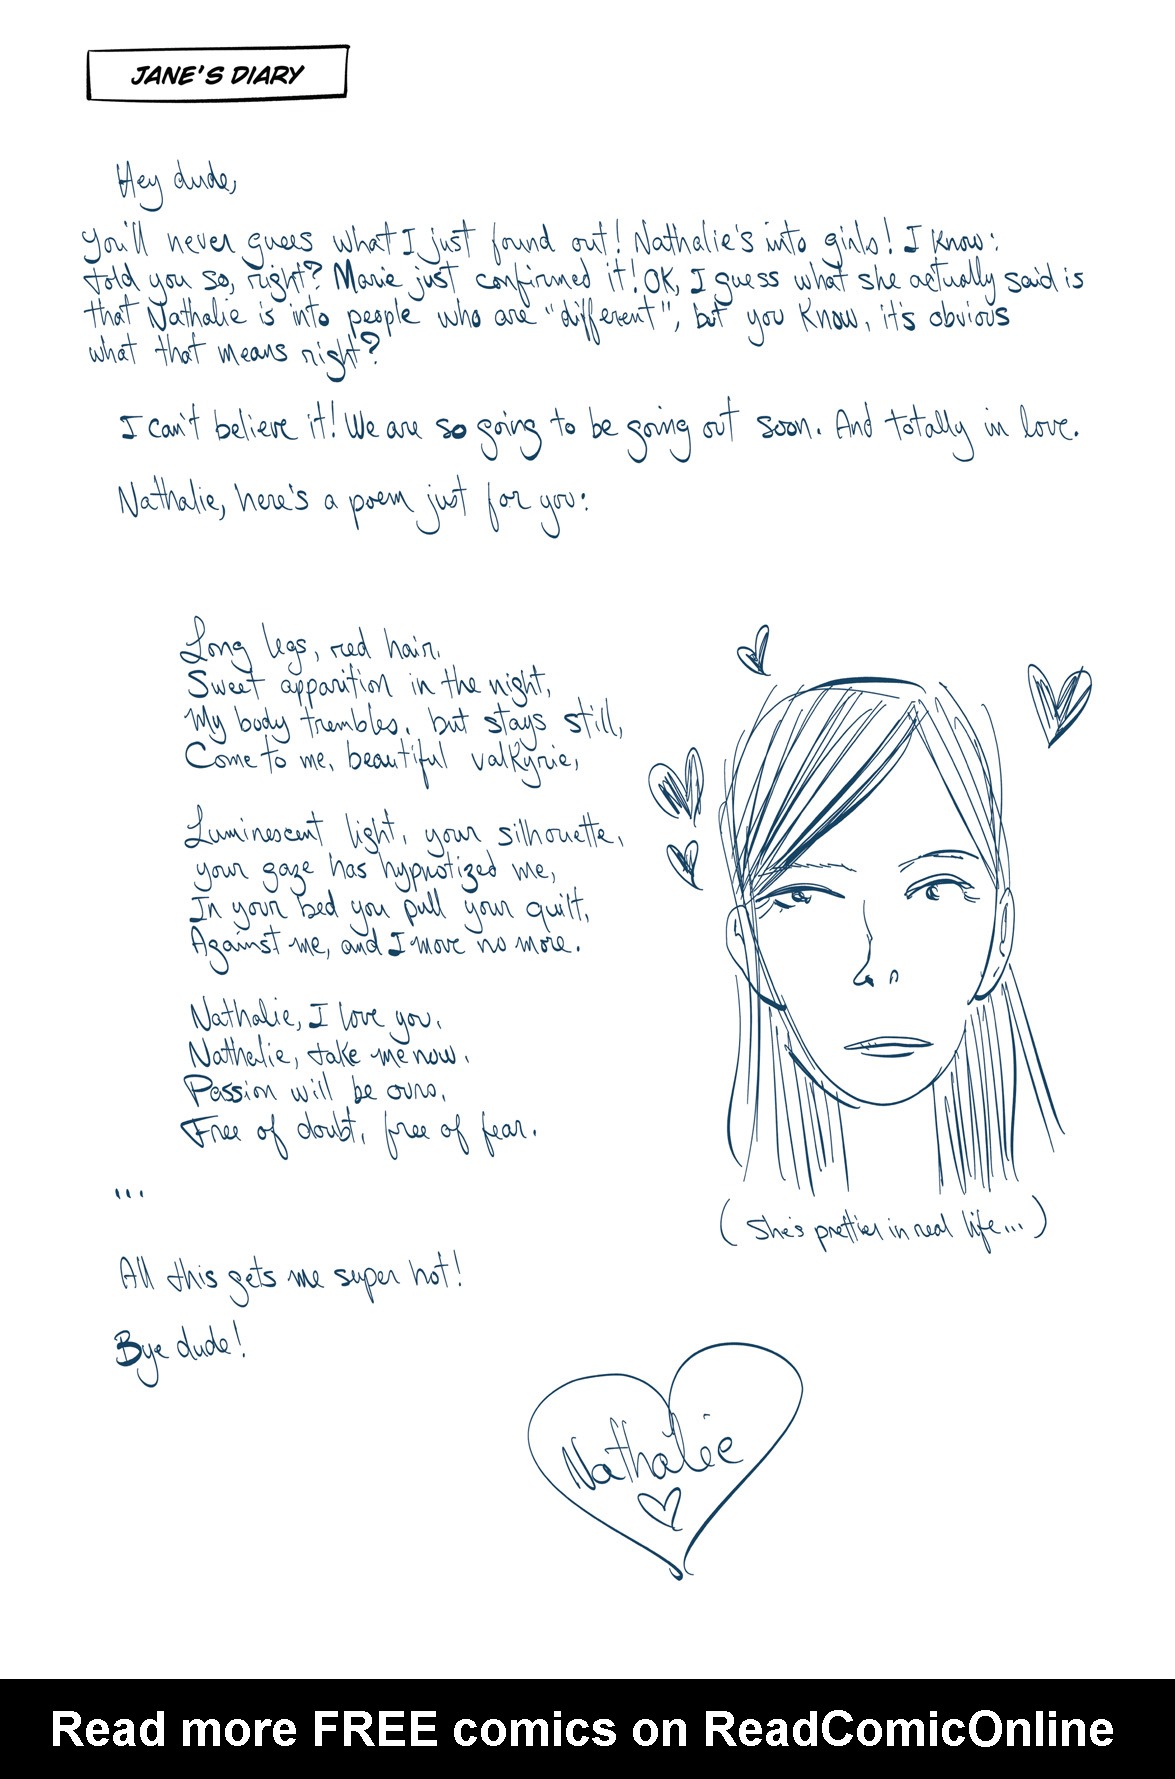 JANE'S DIARY
Hey dude,
You'll never guess what I just found out! Nathalie's into girls! I know:
told you so, right? Marie just confirmed it! OK, I guess what she actually said is
that Nathalie is into people who are "different", but you know, it's obvious
what that means right?
I can't believe it! We are so going to be going out soon. And totally in love.
Nathalie, here's a poem just for you:
Long legs, red hair,
Sweet apparition in the night,
My body trembles, but stays still,
Come to me, beautiful valkyrie,
Luminescent light, your silhouette,
your gaze has hypnotized me,
In your bed you pull your quilt,
Against me, and I move no more.
Nathalie, I love you,
Nathalie, take me now.
Passion will be ours,
Free of doubt, free of fear.
...
(She's prettier in real life...)
All this gets me super hot!
Bye dude!
Nathalie
Read more FREE comics on ReadComicOnline